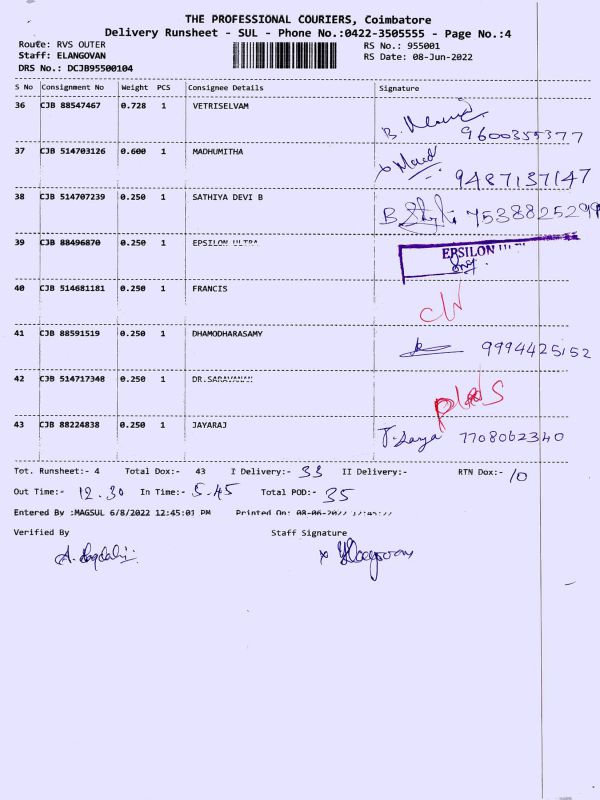 THE PROFESSIONAL COURIERS, Coimbatore
Delivery Runsheet - SUL - Phone No.:0422-3505555 - Page No.:4
Route: RVS OUTER RS No.: 955001
Staff: ELANGOVAN RS Date: 08-Jun-2022
DRS No.: DCJB95500104
S No Consignment No Weight PCS Consignee Details Signature
36 CJB 88547467 0.728 1 VETRISELVAM
B. 9600355377
37 CJB 514703126 0.600 1 MADHUMITHA
9487137147
38 CJB 514707239 0.250 1 SATHIYA DEVI B
B 7538825299
39 CJB 88496870 0.250 1 EPSILON ULTRA
EPSILON
40 CJB 514681181 0.250 1 FRANCIS
41 CJB 88591519 0.250 1 DHAMODHARASAMY
9994425152
42 CJB 514717348 0.250 1 DR.SARAVANAN
43 CJB 88224838 0.250 1 JAYARAJ
7708062340
Tot. Runsheet:- 4 Total Dox:- 43 I Delivery:- 33 II Delivery:- RTN Dox:- 10
Out Time:- 12.30 In Time:- 5.45 Total POD:- 35
Entered By :MAGSUL 6/8/2022 12:45:01 PM Printed On: 08-06-2022
Verified By Staff Signature